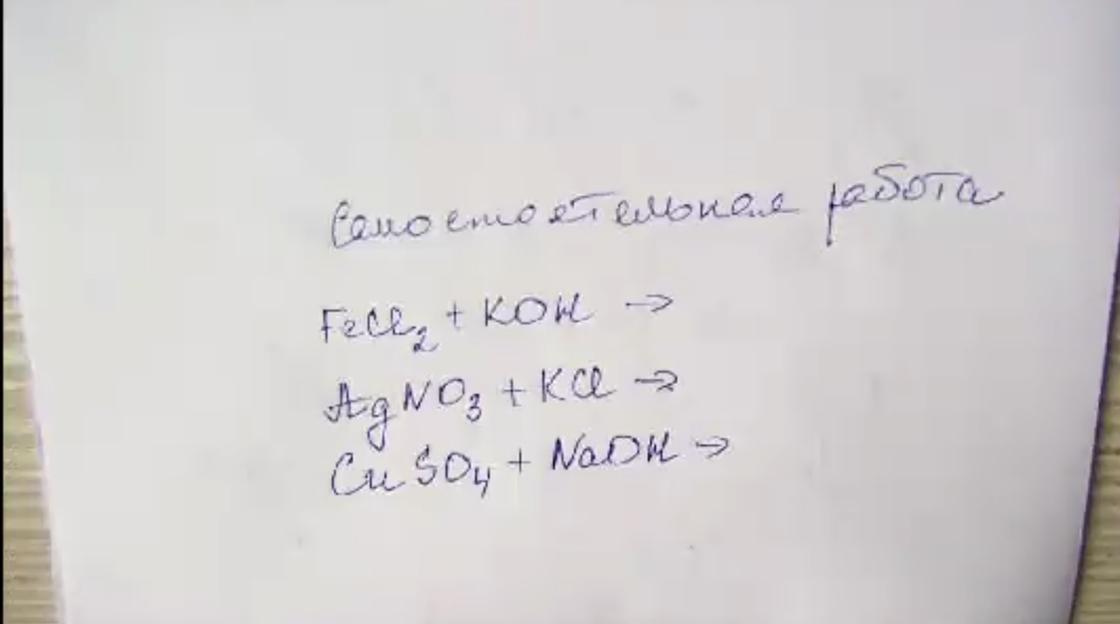 Самостоятельная работа
FeCl₂ + KOH →
AgNO₃ + KCl →
CuSO₄ + NaOH →